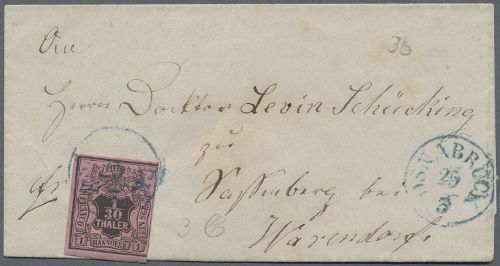 An
3b
Herrn Docktor Levin Schücking
zu
fr
Sassenberg bei
Warendorf.
OSNABRÜCK
25
3
1
30
THALER
HANNOVER
1
1
3